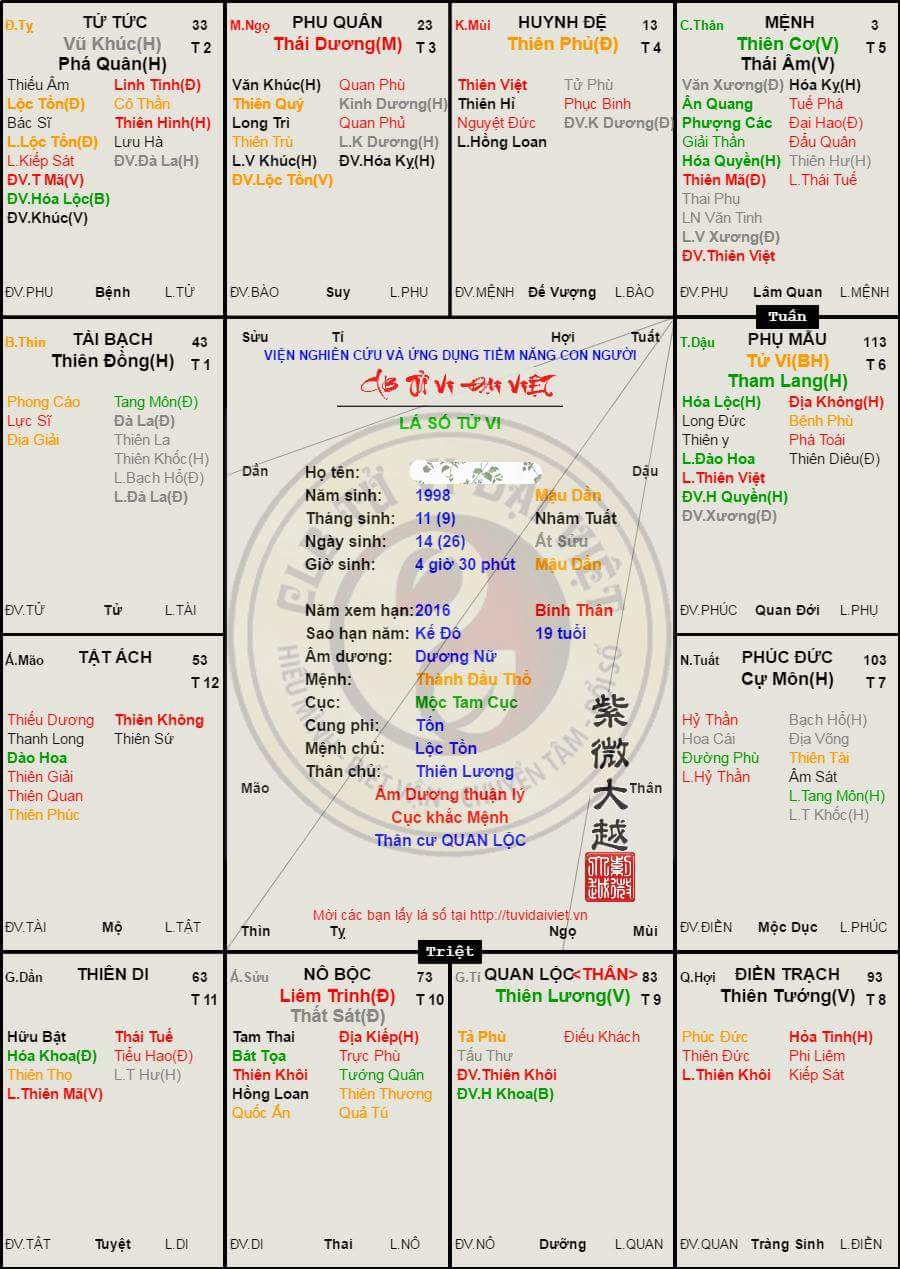 Đ.Tỵ
TỬ TỨC
33
Vũ Khúc(H)
T 2
Phá Quân(H)
Thiếu Âm
Linh Tinh(Đ)
Lộc Tồn(Đ)
Cô Thần
Bác Sĩ
Thiên Hình(H)
L.Lộc Tồn(Đ)
Lưu Hà
L.Kiếp Sát
ĐV.Đà La(H)
ĐV.T Mã(V)
ĐV.Hóa Lộc(B)
ĐV.Khúc(V)
ĐV.PHU
Bệnh
L.TỬ
M.Ngọ
PHU QUÂN
23
Thái Dương(M)
T 3
Văn Khúc(H)
Quan Phù
Thiên Quý
Kình Dương(H)
Long Trì
Quan Phủ
Thiên Trù
L.K Dương(H)
L.V Khúc(H)
ĐV.Hóa Kỵ(H)
ĐV.Lộc Tồn(V)
ĐV.BÀO
Suy
L.PHU
K.Mùi
HUYNH ĐỆ
13
Thiên Phủ(Đ)
T 4
Thiên Việt
Tử Phù
Thiên Hỉ
Phục Binh
Nguyệt Đức
ĐV.K Dương(Đ)
L.Hồng Loan
ĐV.MỆNH
Đế Vượng
L.BÀO
C.Thân
MỆNH
3
Thiên Cơ(V)
T 5
Thái Âm(V)
Văn Xương(Đ)
Hóa Kỵ(H)
Ân Quang
Tuế Phá
Phượng Các
Đại Hao(Đ)
Giải Thần
Đẩu Quân
Hóa Quyền(H)
Thiên Hư(H)
Thiên Mã(Đ)
L.Thái Tuế
Thai Phụ
LN Văn Tinh
L.V Xương(Đ)
ĐV.Thiên Việt
ĐV.PHỤ
Lâm Quan
L.MỆNH
Tuần
B.Thìn
TÀI BẠCH
43
Thiên Đồng(H)
T 1
Phong Cáo
Tang Môn(Đ)
Lực Sĩ
Đà La(Đ)
Địa Giải
Thiên La
Thiên Khốc(H)
L.Bạch Hổ(Đ)
L.Đà La(Đ)
ĐV.TỬ
Tử
L.TÀI
Sửu
Tí
Hợi
Tuất
VIỆN NGHIÊN CỨU VÀ ỨNG DỤNG TIỀM NĂNG CON NGƯỜI
CLB TỬ VI ĐẠI VIỆT
LÁ SỐ TỬ VI
Dần
Họ tên:
Dậu
Năm sinh:
1998
Mậu Dần
Tháng sinh:
11 (9)
Nhâm Tuất
Ngày sinh:
14 (26)
Ất Sửu
Giờ sinh:
4 giờ 30 phút
Mậu Dần
Năm xem hạn:
2016
Bính Thân
Sao hạn năm:
Kế Đô
19 tuổi
Âm dương:
Dương Nữ
Mệnh:
Thành Đầu Thổ
Cục:
Mộc Tam Cục
Cung phi:
Tốn
Mệnh chủ:
Lộc Tồn
Thân chủ:
Thiên Lương
Mão
Thân
Âm Dương thuận lý
Cục khắc Mệnh
Thân cư QUAN LỘC
紫微大越
CLB TỬ VI ĐẠI VIỆT
Mời các bạn lấy lá số tại http://tuvidaiviet.vn
Thìn
Tỵ
Ngọ
Mùi
Triệt
T.Dậu
PHỤ MẪU
113
Tử Vi(BH)
T 6
Tham Lang(H)
Hóa Lộc(H)
Địa Không(H)
Long Đức
Bệnh Phù
Thiên y
Phá Toái
L.Đào Hoa
Thiên Diêu(Đ)
L.Thiên Việt
ĐV.H Quyền(H)
ĐV.Xương(Đ)
ĐV.PHÚC
Quan Đới
L.PHỤ
Á.Mão
TẬT ÁCH
53
T 12
Thiếu Dương
Thiên Không
Thanh Long
Thiên Sứ
Đào Hoa
Thiên Giải
Thiên Quan
Thiên Phúc
ĐV.TÀI
Mộ
L.TẬT
N.Tuất
PHÚC ĐỨC
103
Cự Môn(H)
T 7
Hỷ Thần
Bạch Hổ(H)
Hoa Cái
Địa Võng
Đường Phù
Thiên Tài
L.Hỷ Thần
Âm Sát
L.Tang Môn(H)
L.T Khốc(H)
ĐV.ĐIỀN
Mộc Dục
L.PHÚC
G.Dần
THIÊN DI
63
T 11
Hữu Bật
Thái Tuế
Hóa Khoa(Đ)
Tiểu Hao(Đ)
Thiên Thọ
L.T Hư(H)
L.Thiên Mã(V)
ĐV.TẬT
Tuyệt
L.DI
Á.Sửu
NÔ BỘC
73
Liêm Trinh(Đ)
T 10
Thất Sát(Đ)
Tam Thai
Địa Kiếp(H)
Bát Tọa
Trực Phù
Thiên Khôi
Tướng Quân
Hồng Loan
Thiên Thương
Quốc Ấn
Quả Tú
ĐV.DI
Thai
L.NÔ
G.Tí
QUAN LỘC<THÂN>
83
Thiên Lương(V)
T 9
Tả Phù
Điếu Khách
Tấu Thư
ĐV.Thiên Khôi
ĐV.H Khoa(B)
ĐV.NÔ
Dưỡng
L.QUAN
Q.Hợi
ĐIỀN TRẠCH
93
Thiên Tướng(V)
T 8
Phúc Đức
Hỏa Tinh(H)
Thiên Đức
Phi Liêm
L.Thiên Khôi
Kiếp Sát
ĐV.QUAN
Tràng Sinh
L.ĐIỀN